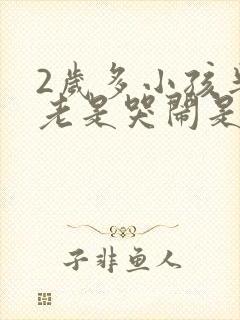 2歲多小孩
老是哭鬧是
子非鱼人